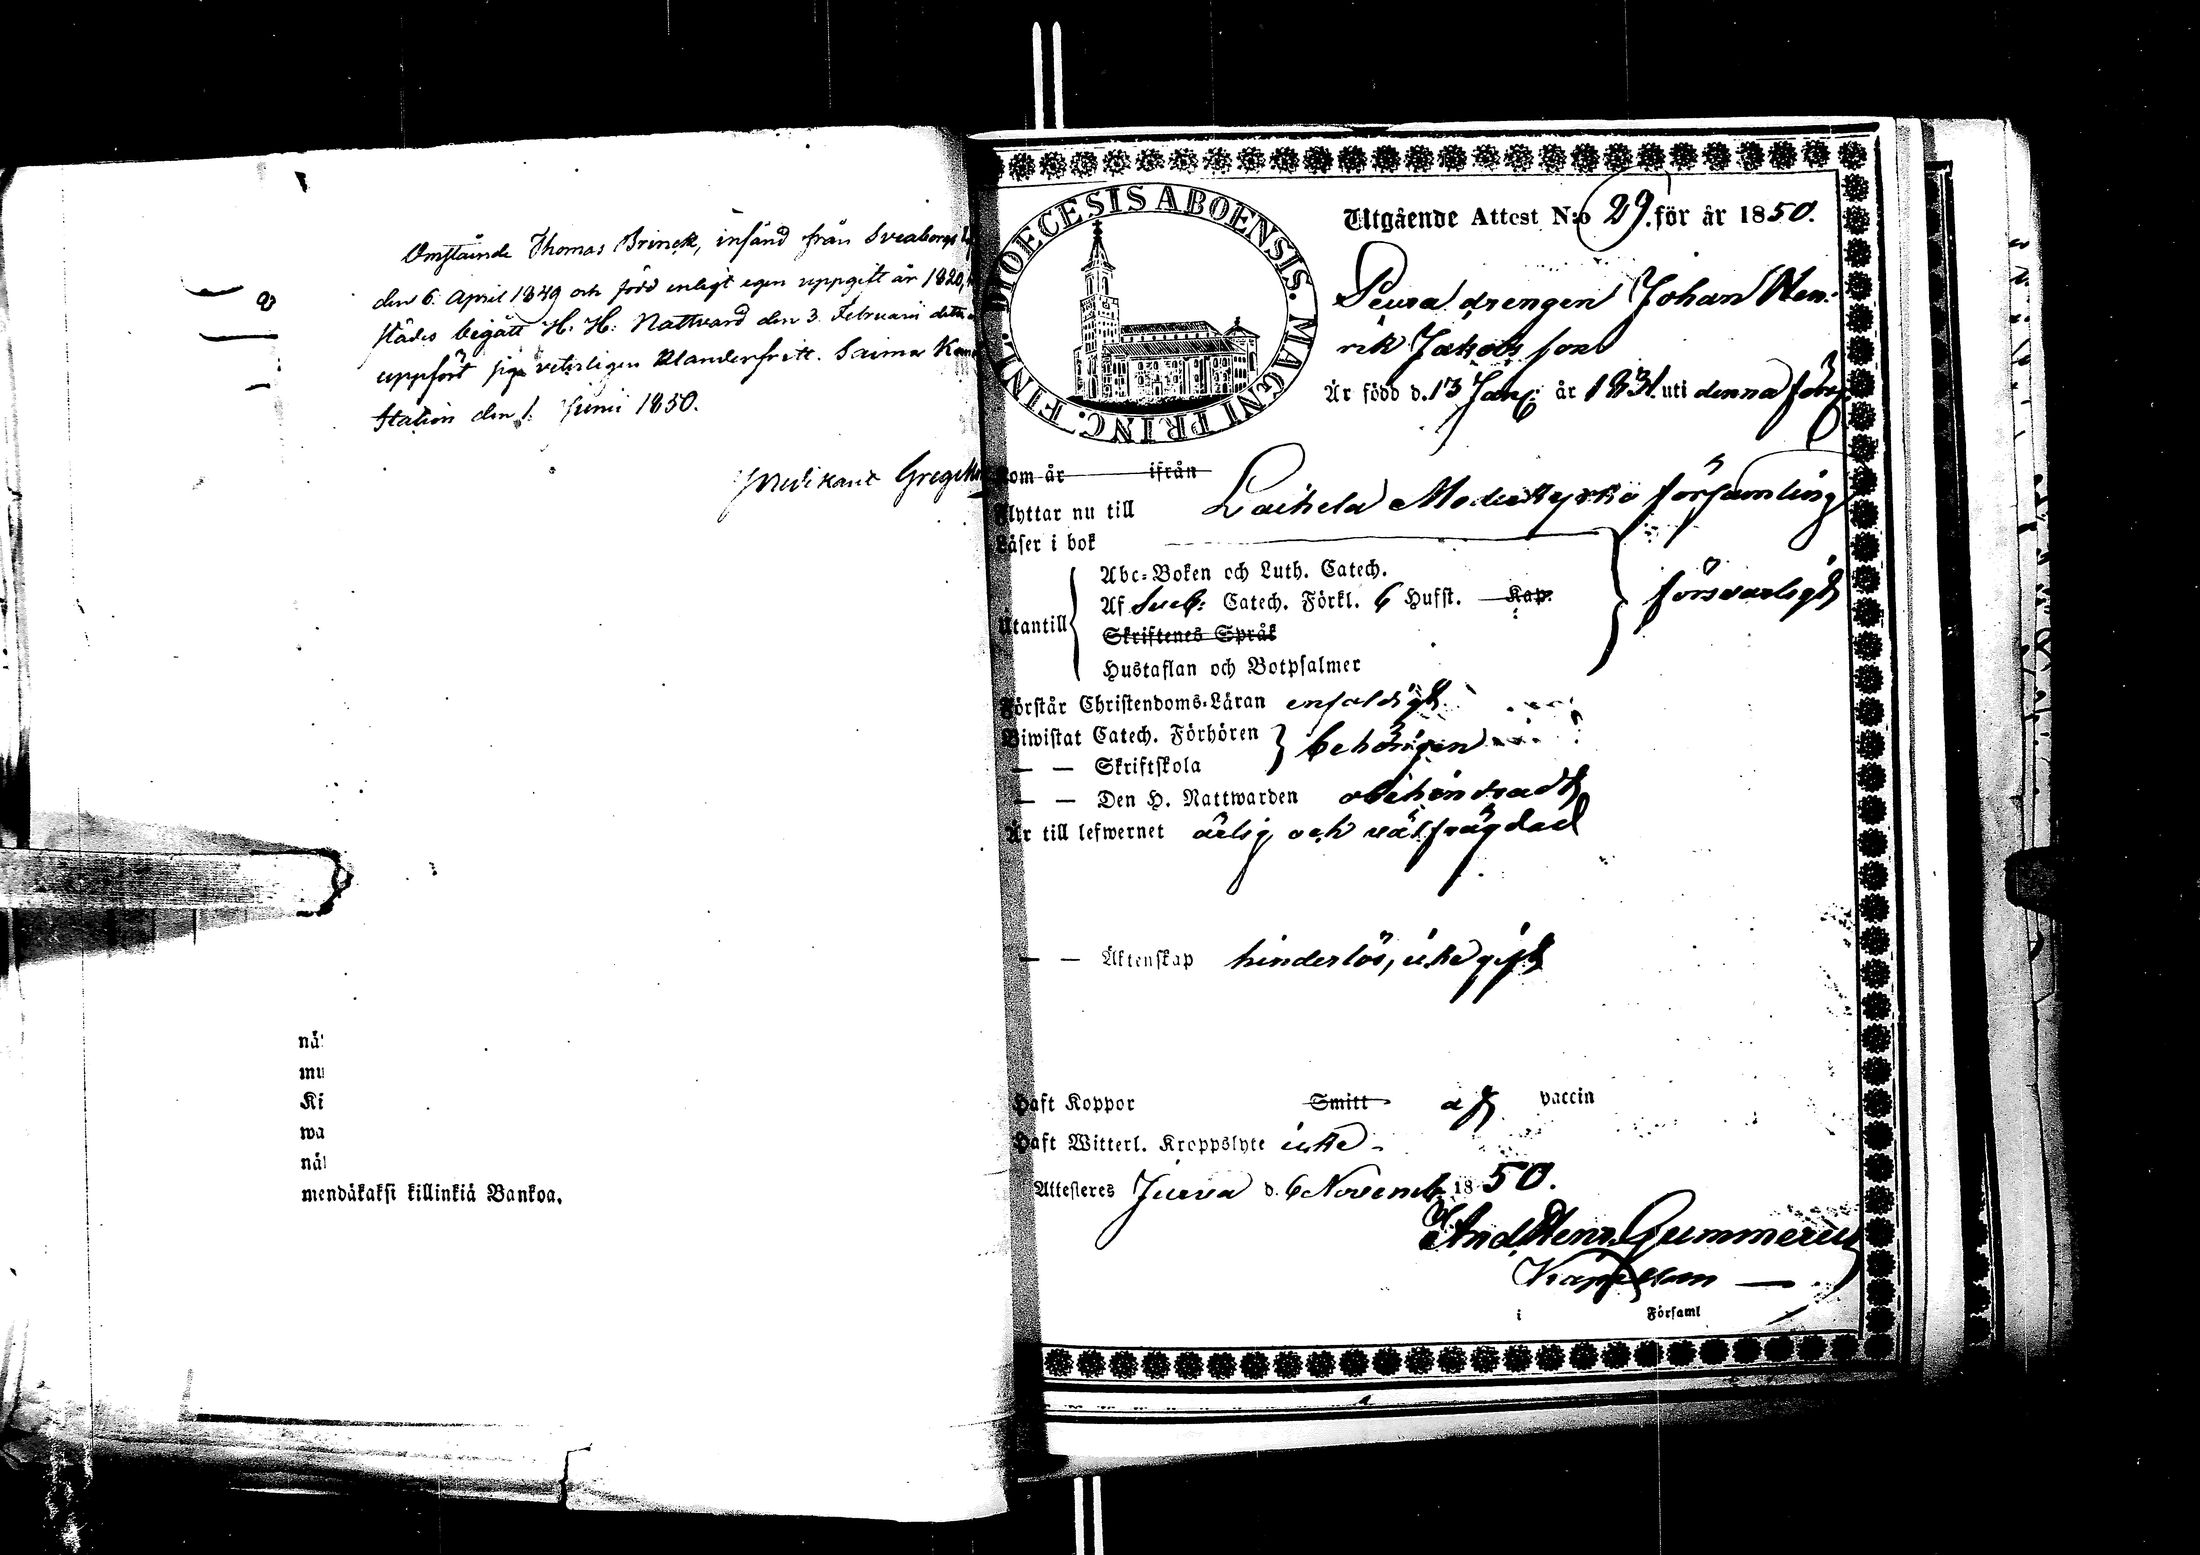 Omstående Thomas Brinck, insänd från Sveaborg
den 6. April 1849 och född enligt egen uppgift år 1820,
städes begått H. H. Nattvard den 3. Februari detta
uppfört sig veterligen klanderfritt. Saima
Station den 1. Juni 1850.
Predikant
nä
mu
Ki
wa
näl
mendäkaksi killinkiä Bankoa.
DIOECESIS ABOENSIS. MAGNI PRINC. FINL.
Utgående Attest N:o 29. för år 1850.
drengen Johan Hen-
rik Jakobsson
Är född d. 13 Jan. år 1831. uti denna förs.
Kom år ifrån
Flyttar nu till Laihela Moderkyrko församling
Läser i bok
Abc-Boken och Luth. Catech.
Af Sveb: Catech. Förkl. 6 Hufst. Kap.
Utantill försvarligt
Skriftenes Språk
Hustaflan och Botpsalmer
Förstår Christendoms-Läran enfaldigt
Biwistat Catech. Förhören behörigen
— — Skriftskola
— — Den H. Nattwarden obehindradt
Är till lefwernet ärlig och välfrägdad
— — Äktenskap hinderlös, icke gift
Haft Koppor Smitt af vaccin
Haft Witterl. Kroppslyte icke
Attesteres Jurva d. 6 Novemb. 1850.
And. Henr. Gummerus
Kapellan
i Församl